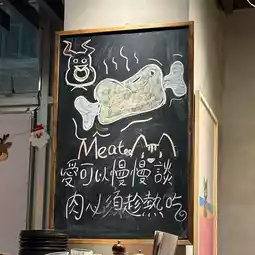 Meat
愛可以慢慢談
肉必須趁熱吃